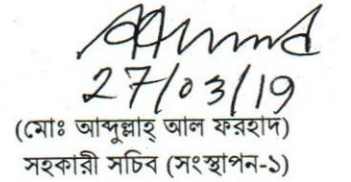 27/03/19
(মোঃ আব্দুল্লাহ্ আল ফরহাদ)
সহকারী সচিব (সংস্থাপন-১)